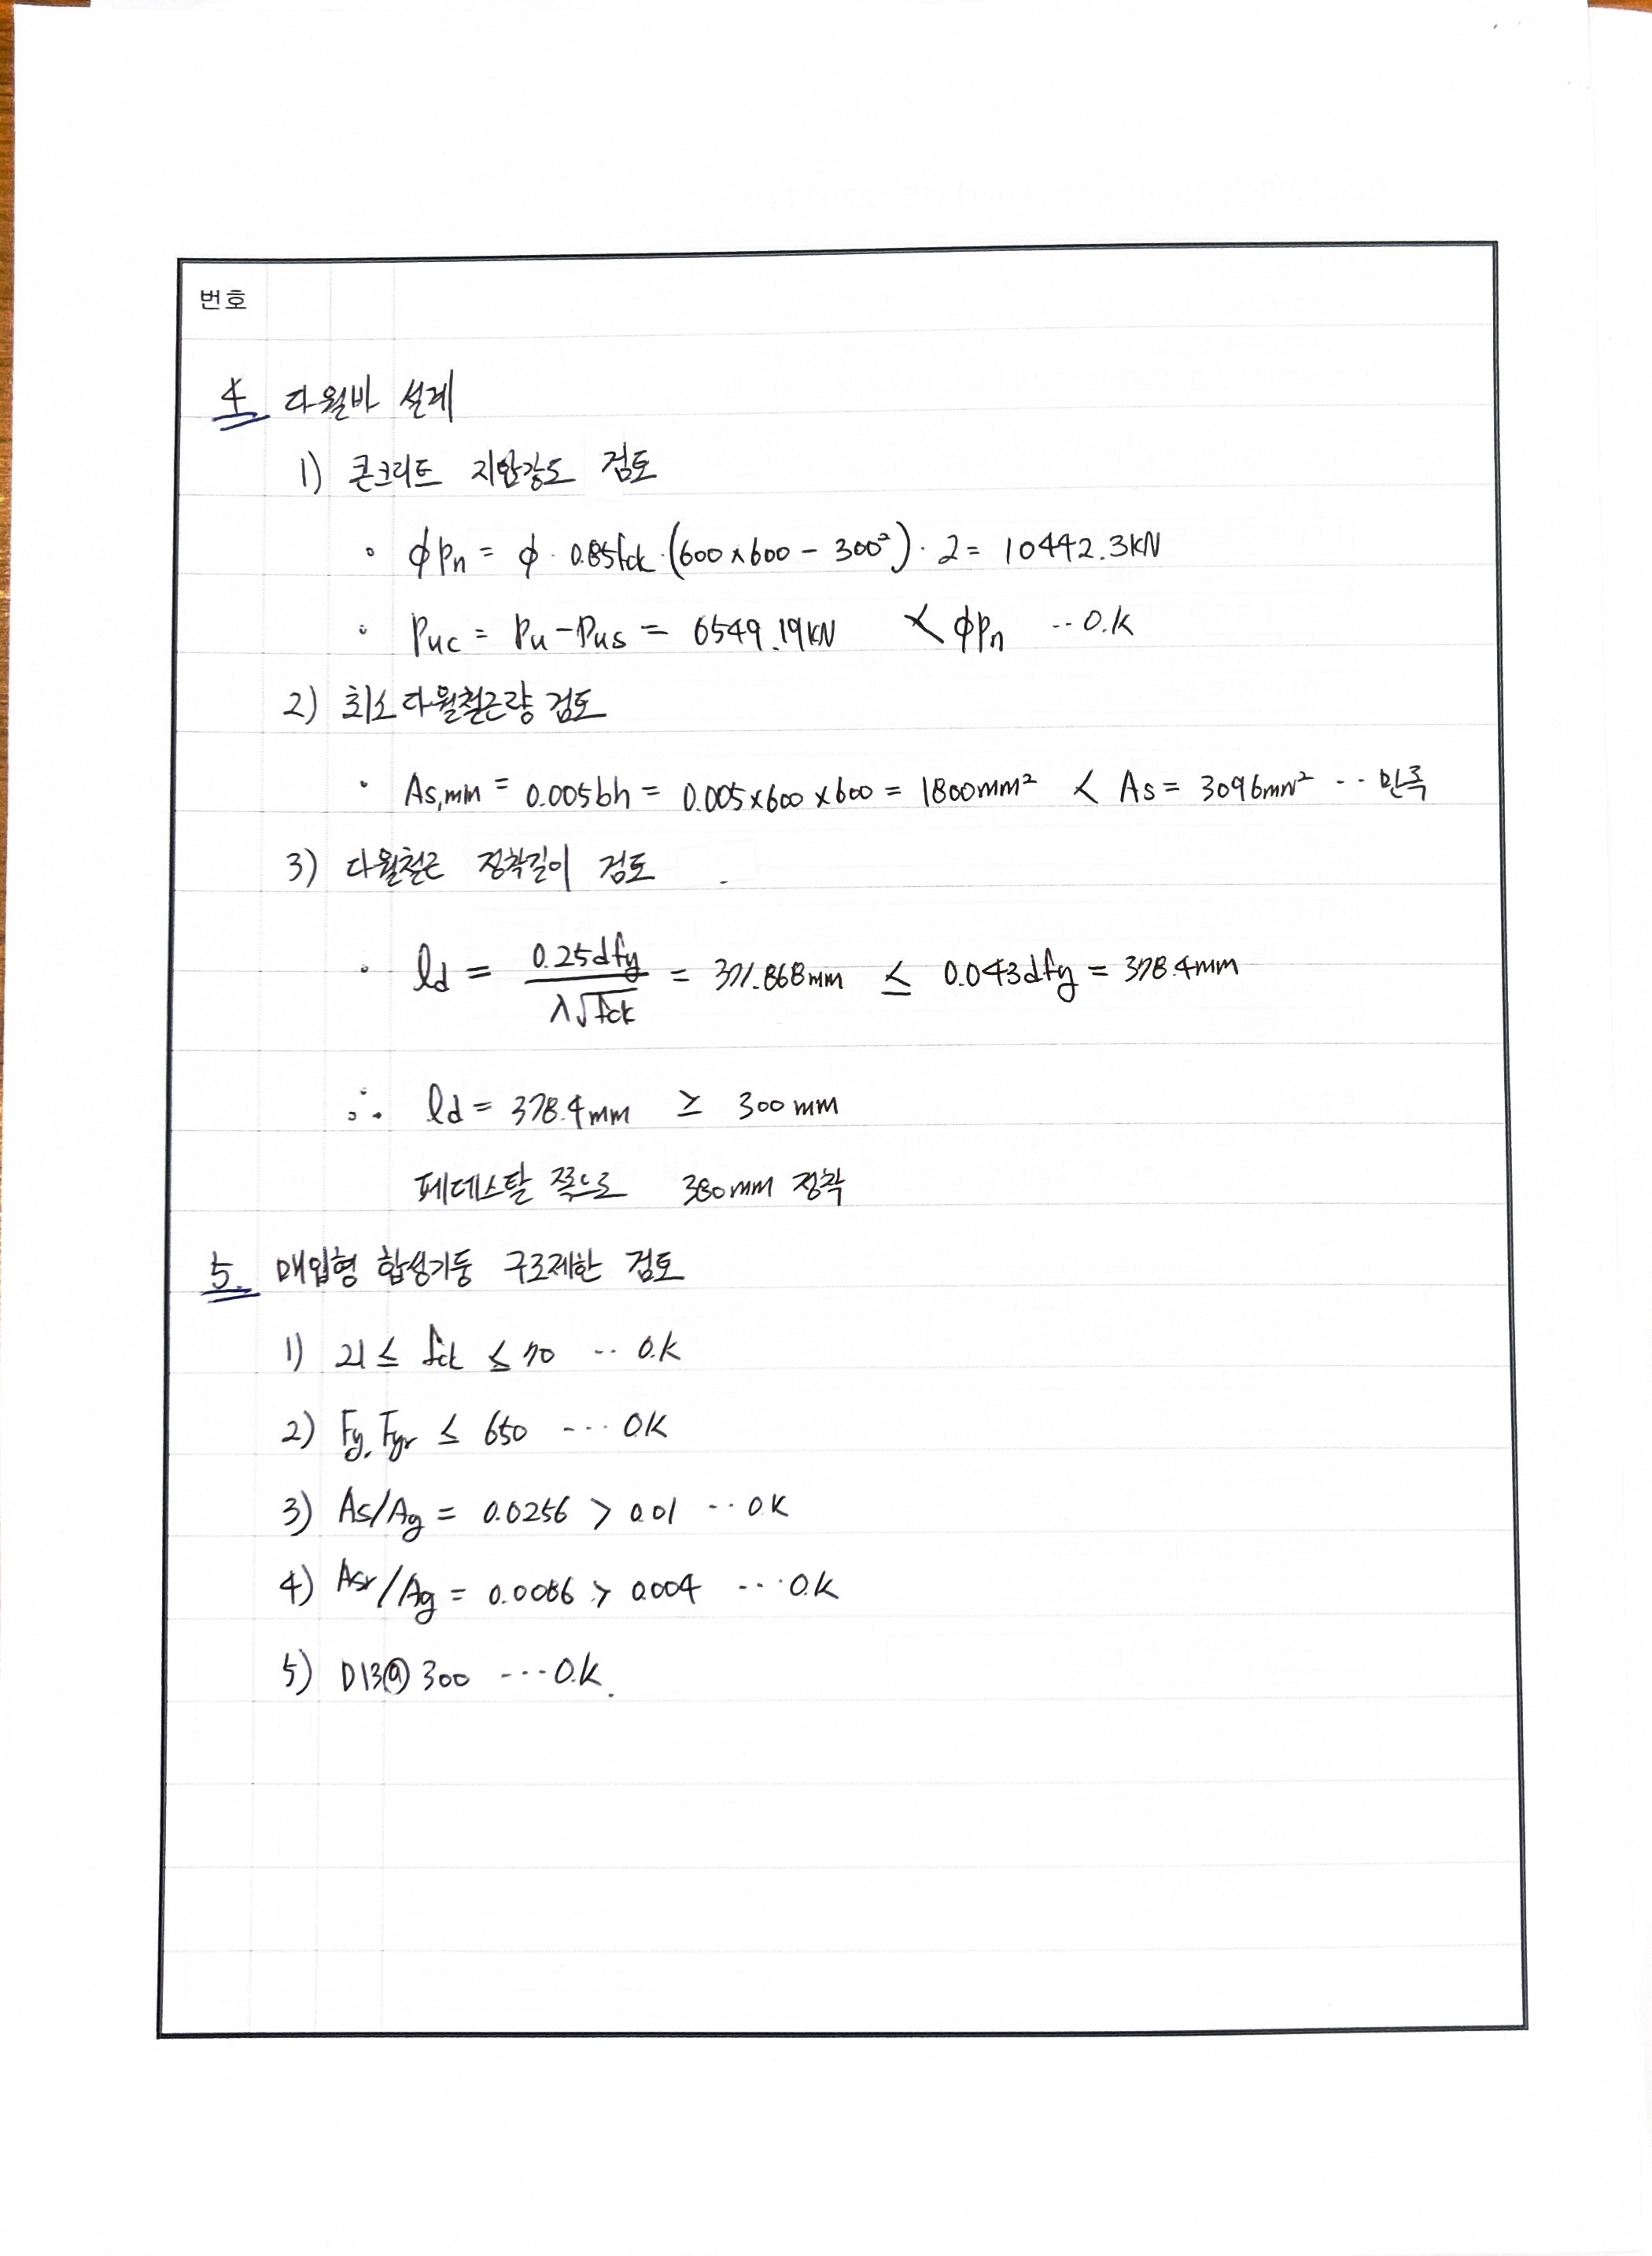 번호
4 다월바 설계
1) 콘크리트 지압강도 검토
• ϕPn = ϕ · 0.85fck · (600×600 - 300²) · 2 = 10442.3kN
• Puc = Pu - Pus = 6549.19kN < ϕPn ‥ O.K
2) 최소 다월철근량 검토
• As,min = 0.005bh = 0.005×600×600 = 1800mm² < As = 3096mm² ‥ 만족
3) 다월철근 정착길이 검토
• ld = 0.25dfy / λ√fck = 371.868mm ≤ 0.043dfy = 378.4mm
∴ ld = 378.4mm ≥ 300mm
페데스탈 쪽으로 380mm 정착
5. 매입형 합성기둥 구조제한 검토
1) 21 ≤ fck ≤ 70 ‥ O.K
2) Fy, Fyr ≤ 650 … OK
3) As/Ag = 0.0256 > 0.01 ‥ OK
4) Asr/Ag = 0.0086 > 0.004 … O.K
5) D13@300 … O.K.